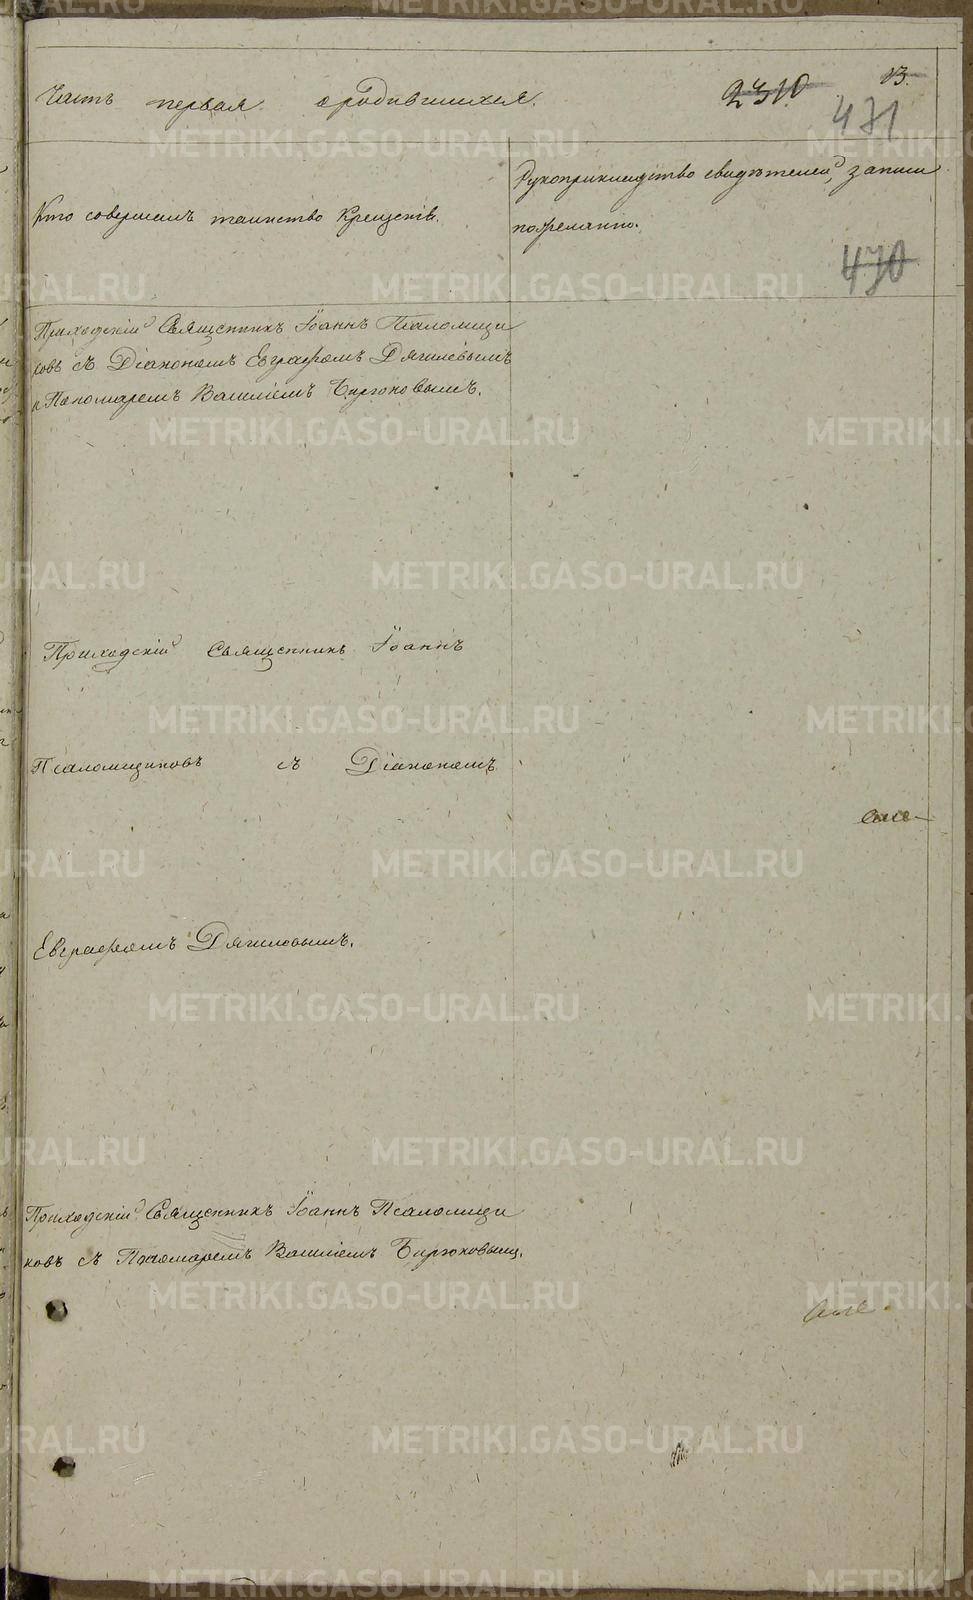 Часть первая о родившихся.
2310
13.
471
Кто совершалъ таинство Крещенія.
Рукоприкладство свидѣтелей, записи
по желанію.
470
Приходскій Священникъ Іоаннъ Псаломщи
ковъ съ Діакономъ Евграфомъ Дягилевымъ
и Пономаремъ Василіемъ Бирюковымъ.
Приходскій Священникъ Іоаннъ
Псаломщиковъ съ Діакономъ
Евграфомъ Дягилевымъ.
Приходскій Священникъ Іоаннъ Псаломщи
ковъ съ Пономаремъ Василіемъ Бирюковым.
METRIKI.GASO-URAL.RU